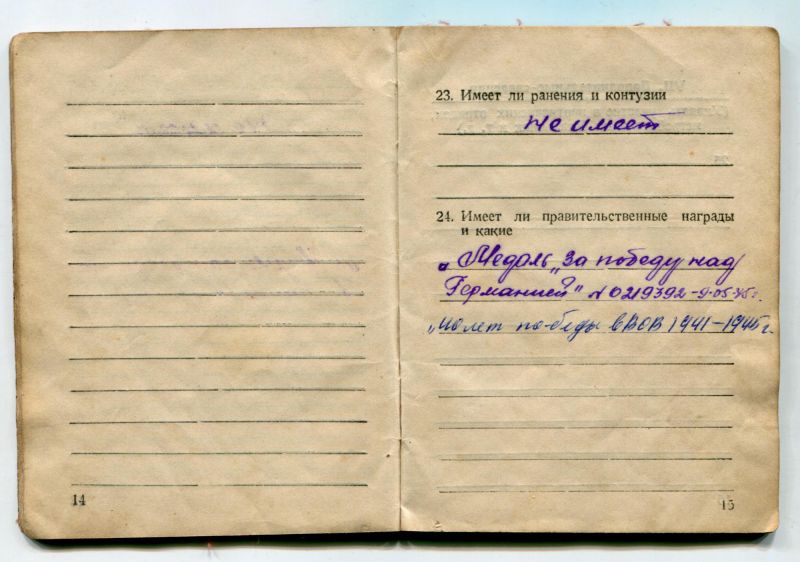 14
23. Имеет ли ранения и контузии
не имеет
24. Имеет ли правительственные награды
и какие
„Медаль „За победу над
Германией" N 0219392 - 9.05.45г.
победы в ВОВ 1941-1945г.
15